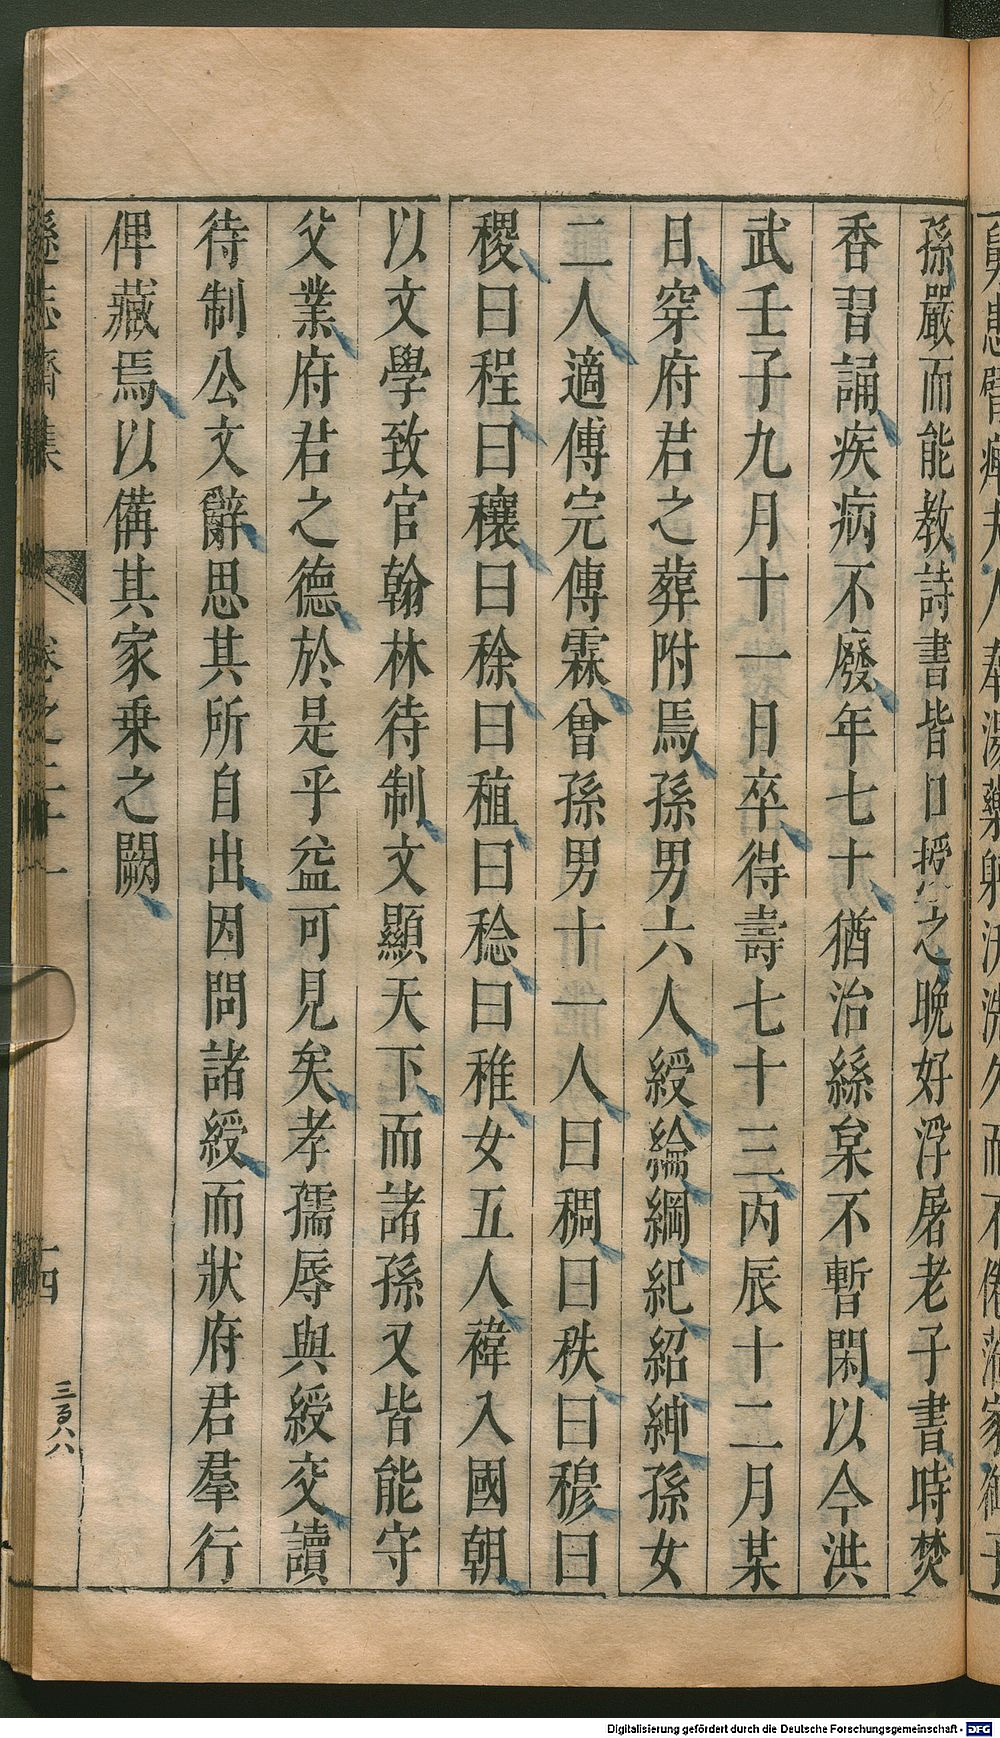 孫嚴而能教詩書皆口授之晚好浮屠老子書時焚
香習誦疾病不廢年七十猶治絲枲不暫閑以今洪
武壬子九月十一日卒得壽七十三丙辰十二月某
日穿府君之葬附焉孫男六人綬綸綱紀紹紳孫女
二人適傅完傅霖曾孫男十一人曰稠曰秩曰穆曰
稷曰程曰穰曰稌曰稙曰稔曰稚女五人褘入國朝
以文學致官翰林待制文顯天下而諸孫又皆能守
父業府君之德於是乎益可見矣孝孺辱與綬交讀
待制公文辭思其所自出因問諸綬而狀府君羣行
俾藏焉以備其家乗之闕
遜志齋集
卷之二十一
十四
三百八八
Digitalisierung gefördert durch die Deutsche Forschungsgemeinschaft - DFG